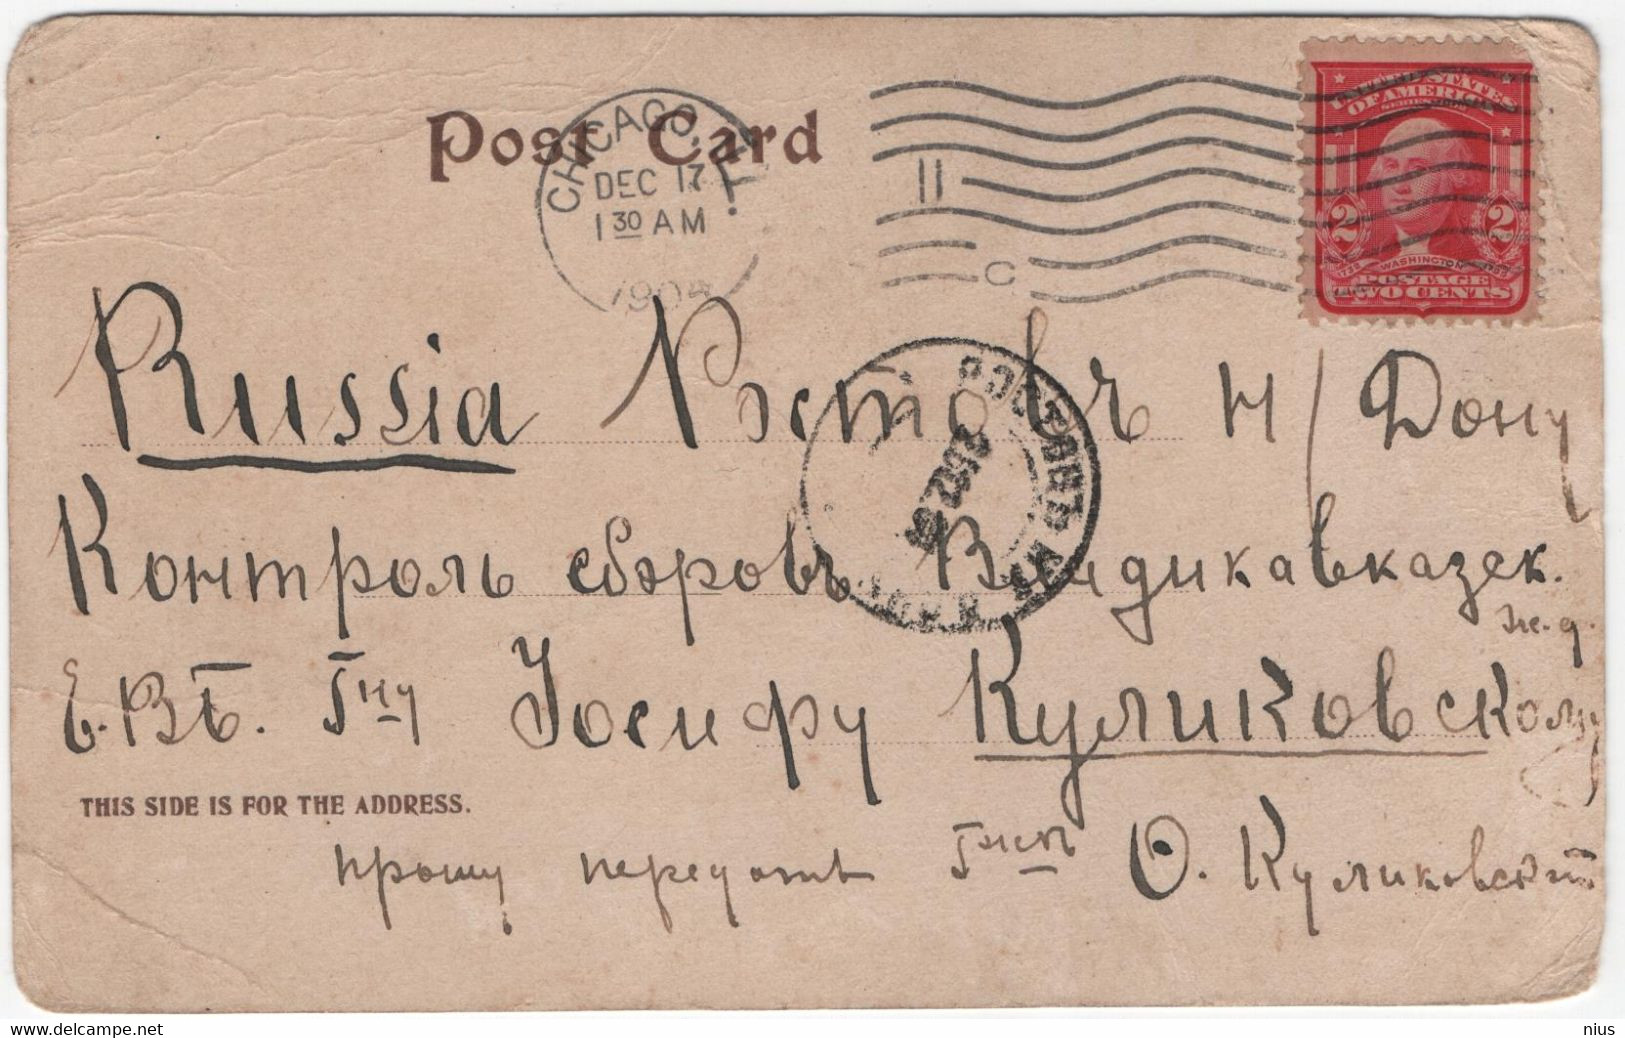 Post Card
CHICAGO, ILL.
DEC 17
1 30 AM
1904
11
C
UNITED STATES
OF AMERICA
SERIES 1902
2 2
1732 WASHINGTON 1799
POSTAGE
TWO CENTS
Russia Ростовъ Н/Дону
РОСТОВЪ НА ДОНУ
Контроль сборовъ Владикавказск.
ж.д.
Е.ВБ. Гну Іосифу Куликовскому
THIS SIDE IS FOR THE ADDRESS.
прошу передать Гжѣ О. Куликовской
delcampe.net
nius